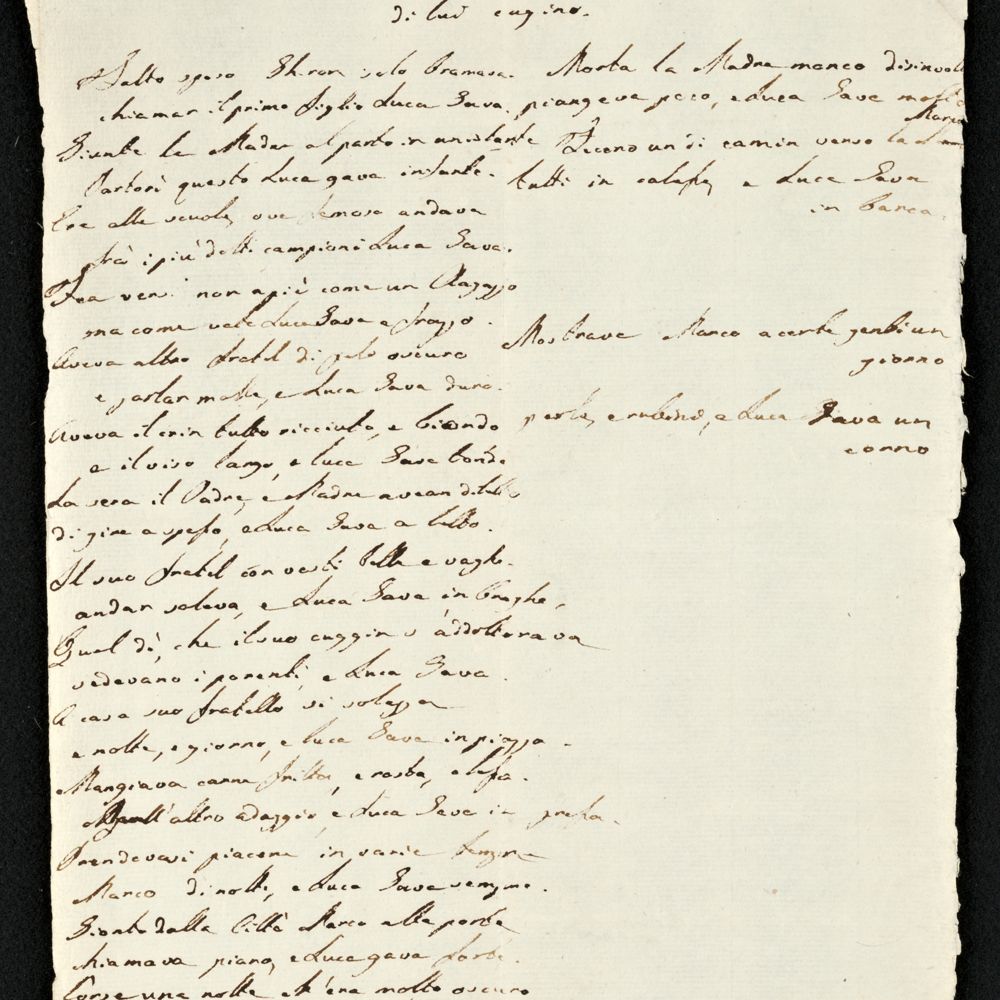 di lui cugino.
Fatto sposo solo bramava.
chiamar il primo figlio Luca Gava.
Giunta la Madre al parto in un istante
Partorì questo Luca gava infante.
Era alle scuole, ove andava
frà i più dotti campioni Luca Gava.
Fea versi non già come un Ragazzo
ma come Luca Gava e
Aveva altro fratel di pelo oscuro
e parlar molle, e Luca Gava duro.
Aveva il crin tutto ricciuto, e biondo
e il viso lungo, e luca Gava tondo
La sera il Padre, e Madre avean diletto
di gire a spasso, e Luca Gava a letto.
Il suo fratel con vesti belle e vaghe.
andar soleva, e Luca Gava in braghe,
Quel dì, che il suo cuggin s'addottorava
vedevano i parenti, e Luca Gava.
A casa suo fratello si
e notte, e giorno, e luca Gava in piazza.
Mangiava carne fritta, e rosta, e lessa.
altro adaggio, e Luca Gava in pressa.
Prendevasi piacere in varie tempre
Marco di notte, e Luca Gava sempre.
Gionto dalla Città Marco alle porte
chiamava piano, e Luca gava forte.
Corse una notte ch'era molto oscuro
Morta la Madre Marco
piangeva poco, e Luca Gava molto
Marco
Fecero un dì camin verso la
tutti in calesse, e Luca Gava
in barca.
Mostrava Marco a certe genti un
giorno
perle, e rubini, e Luca Gava un
corno